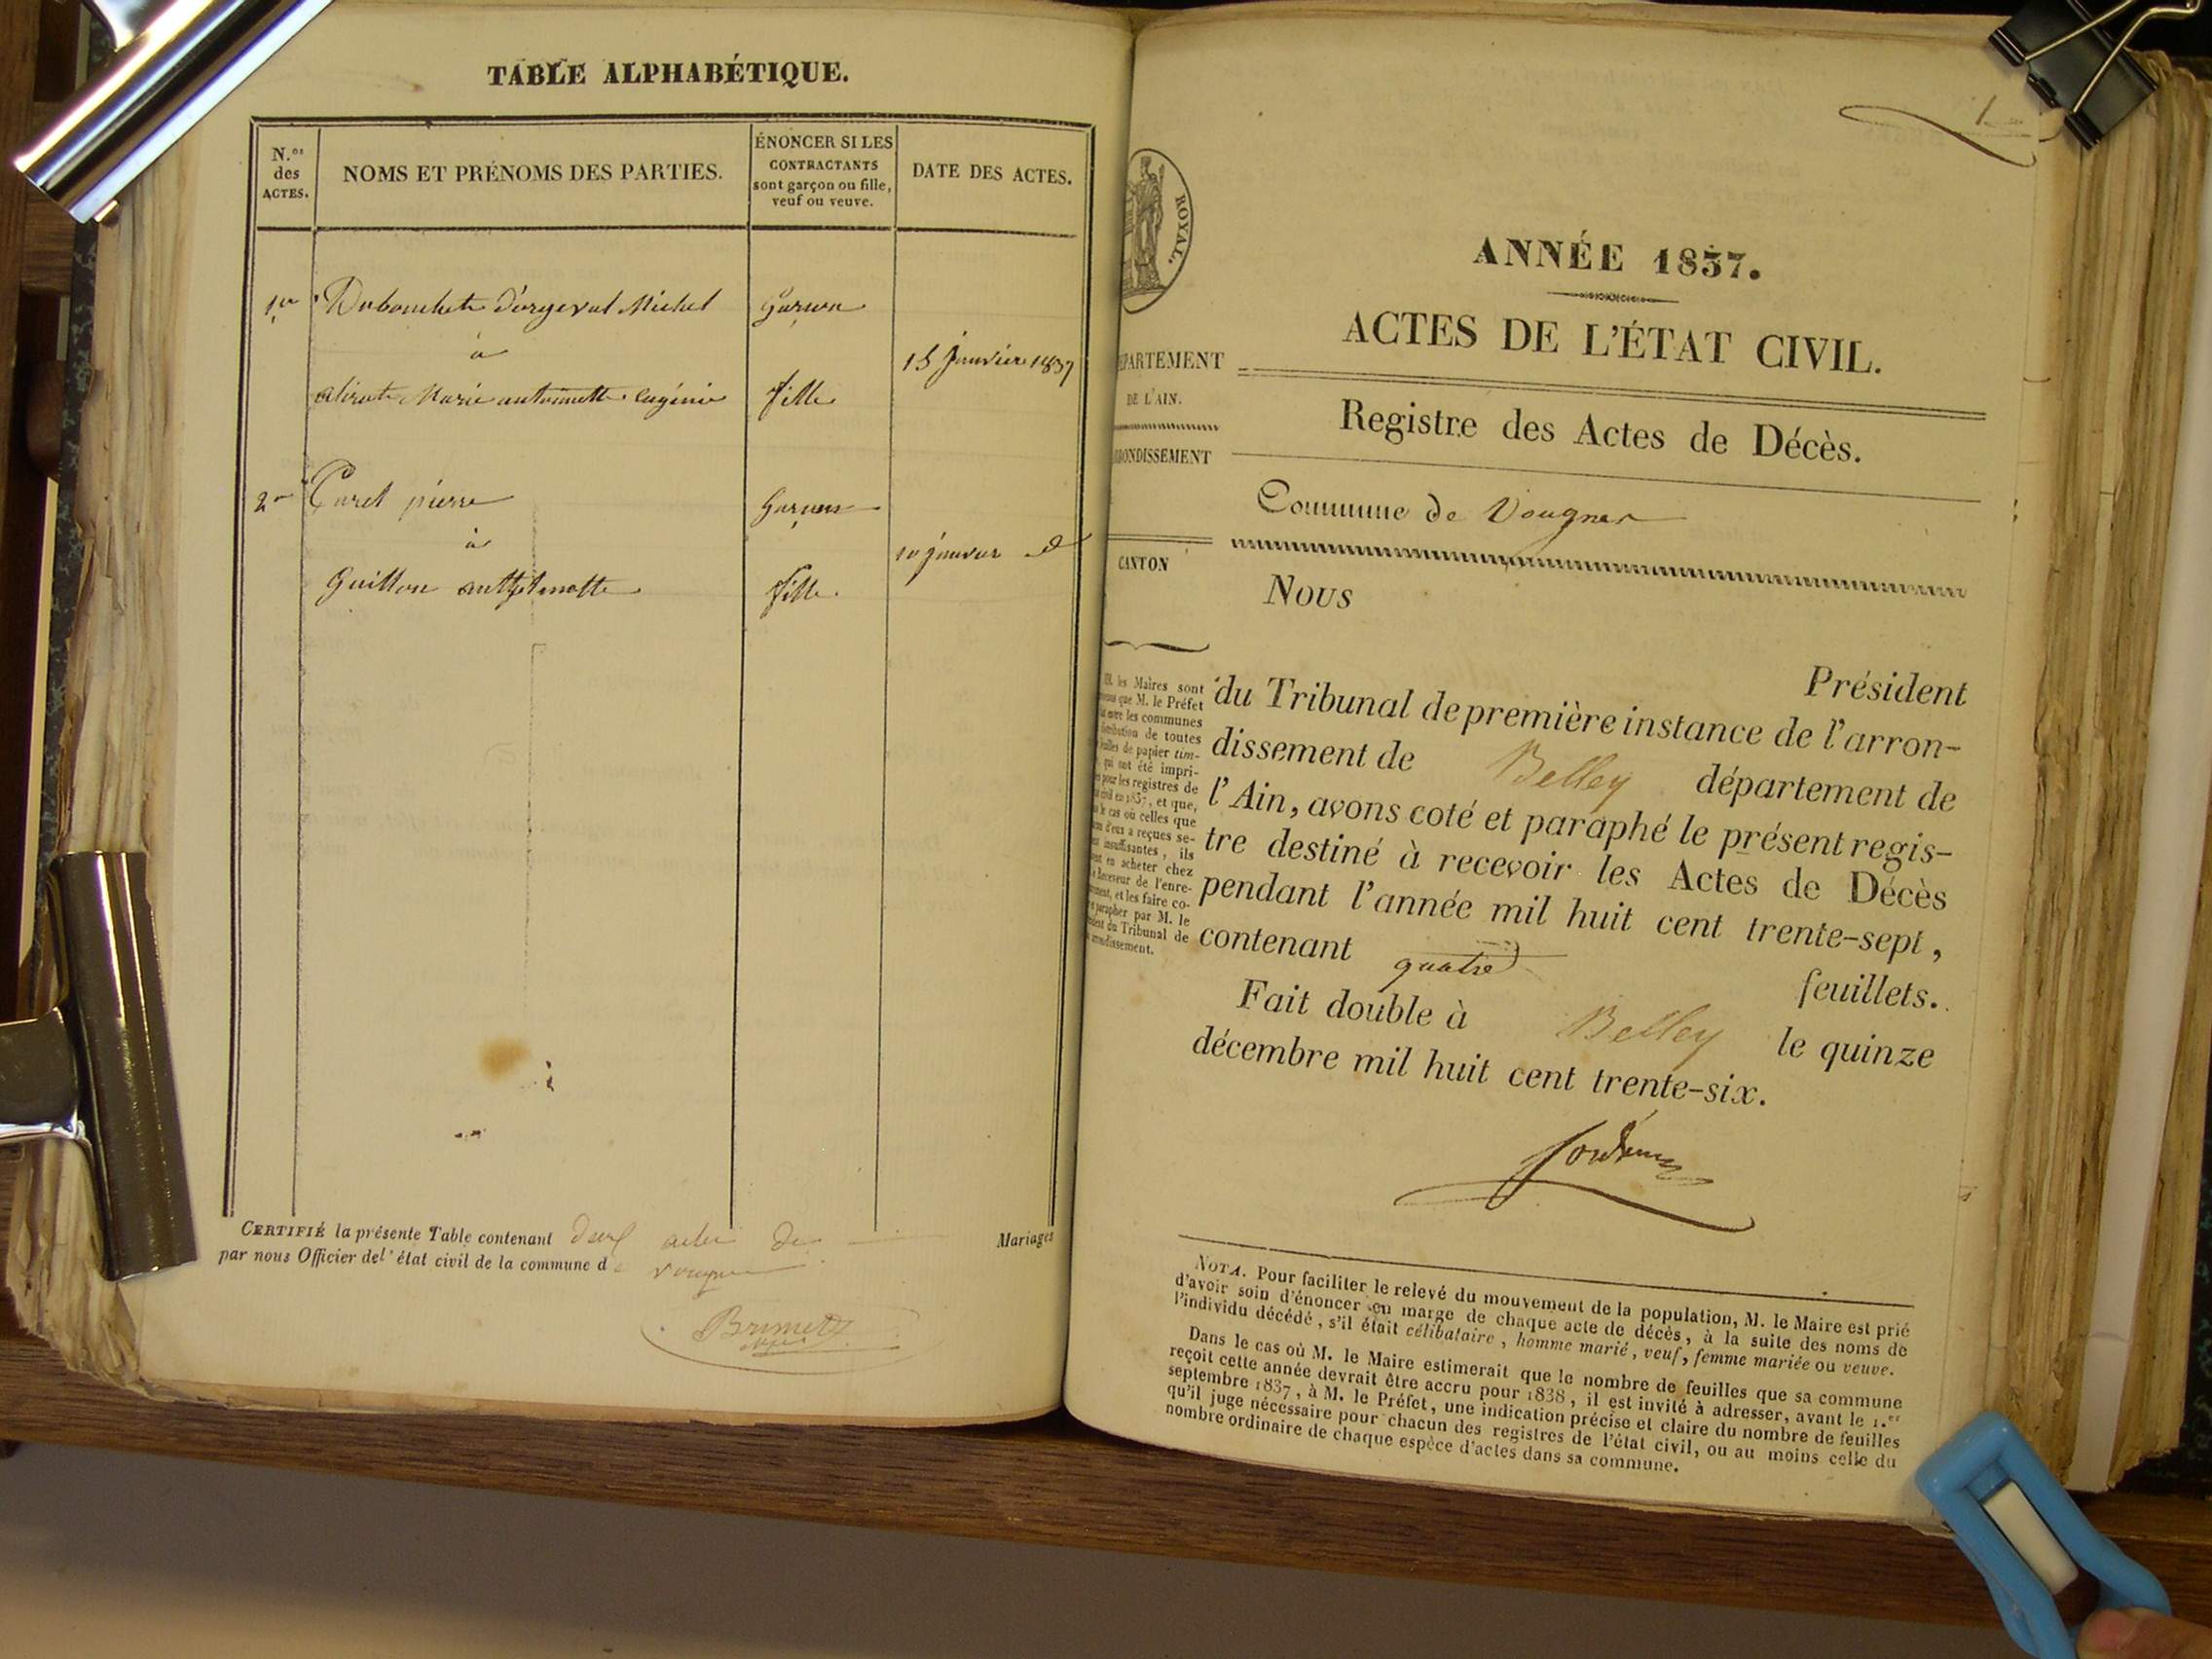 TABLE ALPHABÉTIQUE.
N.os des ACTES.
NOMS ET PRÉNOMS DES PARTIES.
ÉNONCER SI LES CONTRACTANTS sont garçon ou fille, veuf ou veuve.
DATE DES ACTES.
1er Dubouchet d'orgeval Michel garçon
à
15 janvier 1837
Marie antoinette eugénie fille
2e pierre garçon
à
janvier d
Guillon anthelmette fille.
CERTIFIÉ la présente Table contenant deux actes de Mariages
par nous Officier de l'état civil de la commune de
1
ROYAL.
ANNÉE 1837.
ACTES DE L'ÉTAT CIVIL.
DÉPARTEMENT
DE L'AIN.
Registre des Actes de Décès.
ARRONDISSEMENT
Commune de Vougnes
CANTON
Nous
Président
du Tribunal de première instance de l'arron-
dissement de Belley département de
l'Ain, avons coté et paraphé le présent regis-
tre destiné à recevoir les Actes de Décès
pendant l'année mil huit cent trente-sept,
contenant quatre
feuillets.
Fait double à Belley le quinze
décembre mil huit cent trente-six.
les Maires sont
que M. le Préfet
entre les communes
de toutes
de papier tim-
qui ont été impri-
pour les registres de
en 1837, et que,
le cas où celles que
d'eux a reçues se-
insuffisantes, ils
en acheter chez
Receveur de l'enre-
et les faire co-
parapher par M. le
du Tribunal de
NOTA. Pour faciliter le relevé du mouvement de la population, M. le Maire est prié
d'avoir soin d'énoncer en marge de chaque acte de décès, à la suite des noms de
l'individu décédé, s'il était célibataire, homme marié, veuf, femme mariée ou veuve.
Dans le cas où M. le Maire estimerait que le nombre de feuilles que sa commune
reçoit cette année devrait être accru pour 1838, il est invité à adresser, avant le 1.er
septembre 1837, à M. le Préfet, une indication précise et claire du nombre de feuilles
qu'il juge nécessaire pour chacun des registres de l'état civil, ou au moins celle du
nombre ordinaire de chaque espèce d'actes dans sa commune.